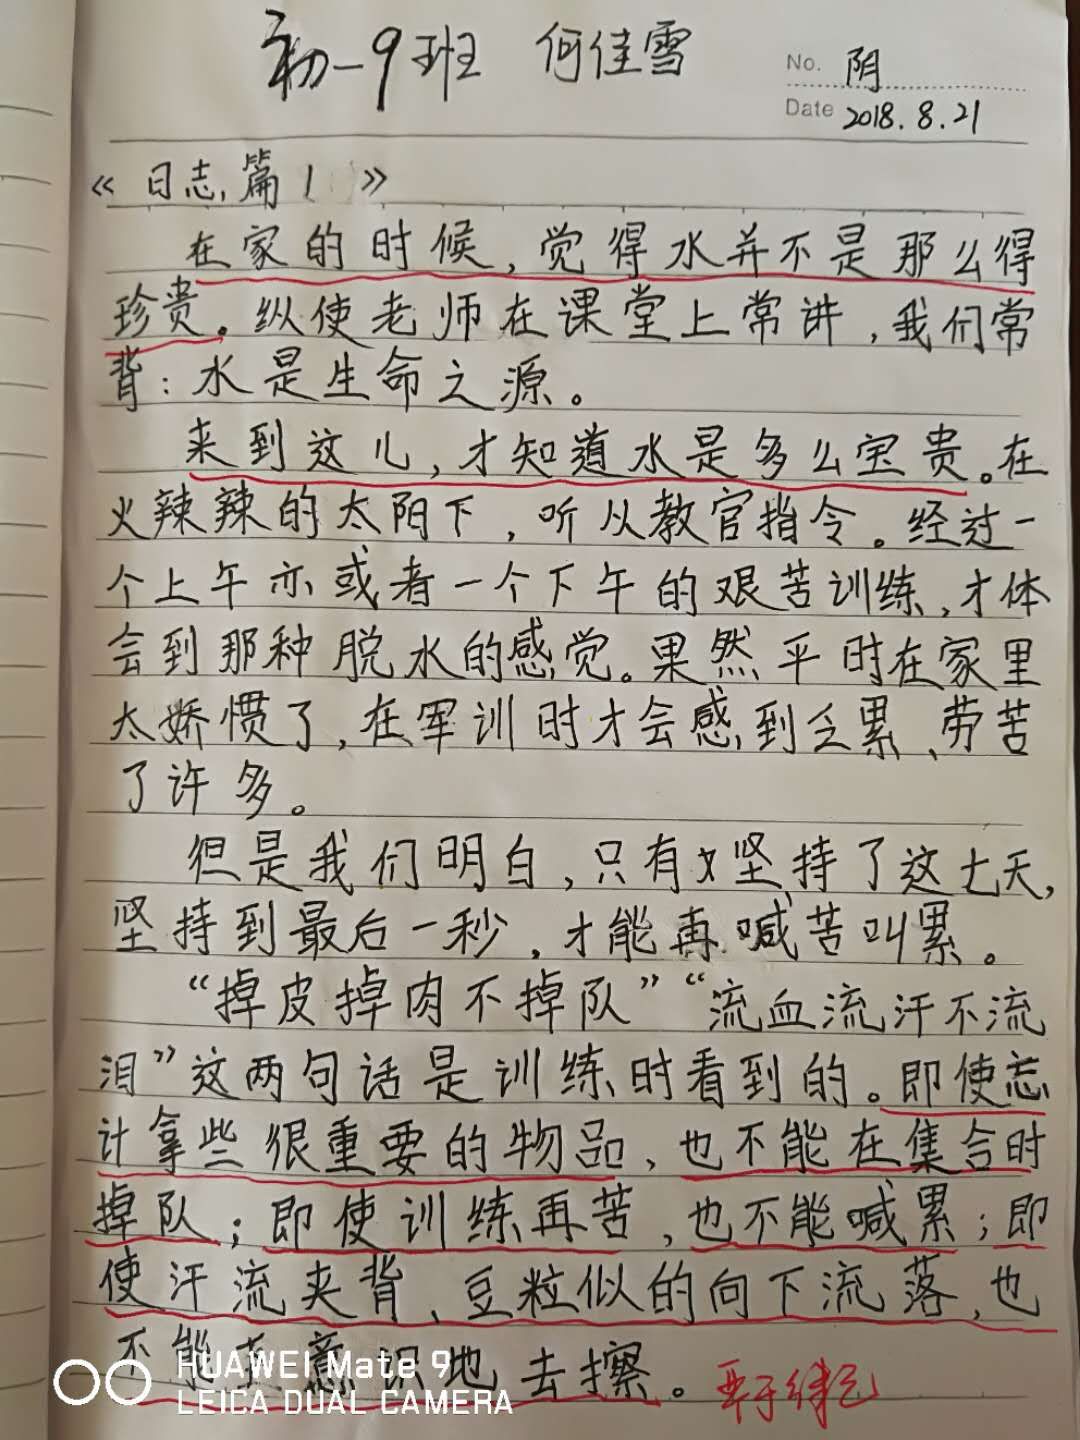 初一9班 何佳雪
No. 阴
Date 2018.8.21
《日志,篇1》
在家的时候,觉得水并不是那么得
珍贵。纵使老师在课堂上常讲,我们常
背:水是生命之源。
来到这儿,才知道水是多么宝贵。在
火辣辣的太阳下,听从教官指令。经过一
个上午亦或者一个下午的艰苦训练,才体
会到那种脱水的感觉。果然平时在家里
太娇惯了,在军训时才会感到乏累、劳苦
了许多。
但是我们明白,只有坚持了这七天,
坚持到最后一秒,才能再喊苦叫累。
“掉皮掉肉不掉队”“流血流汗不流
泪”这两句话是训练时看到的。即使忘
计拿些很重要的物品,也不能在集合时
掉队;即使训练再苦,也不能喊累;即
使汗流夹背、豆粒似的向下流落,也
不能意识地去擦。
HUAWEI Mate 9
LEICA DUAL CAMERA